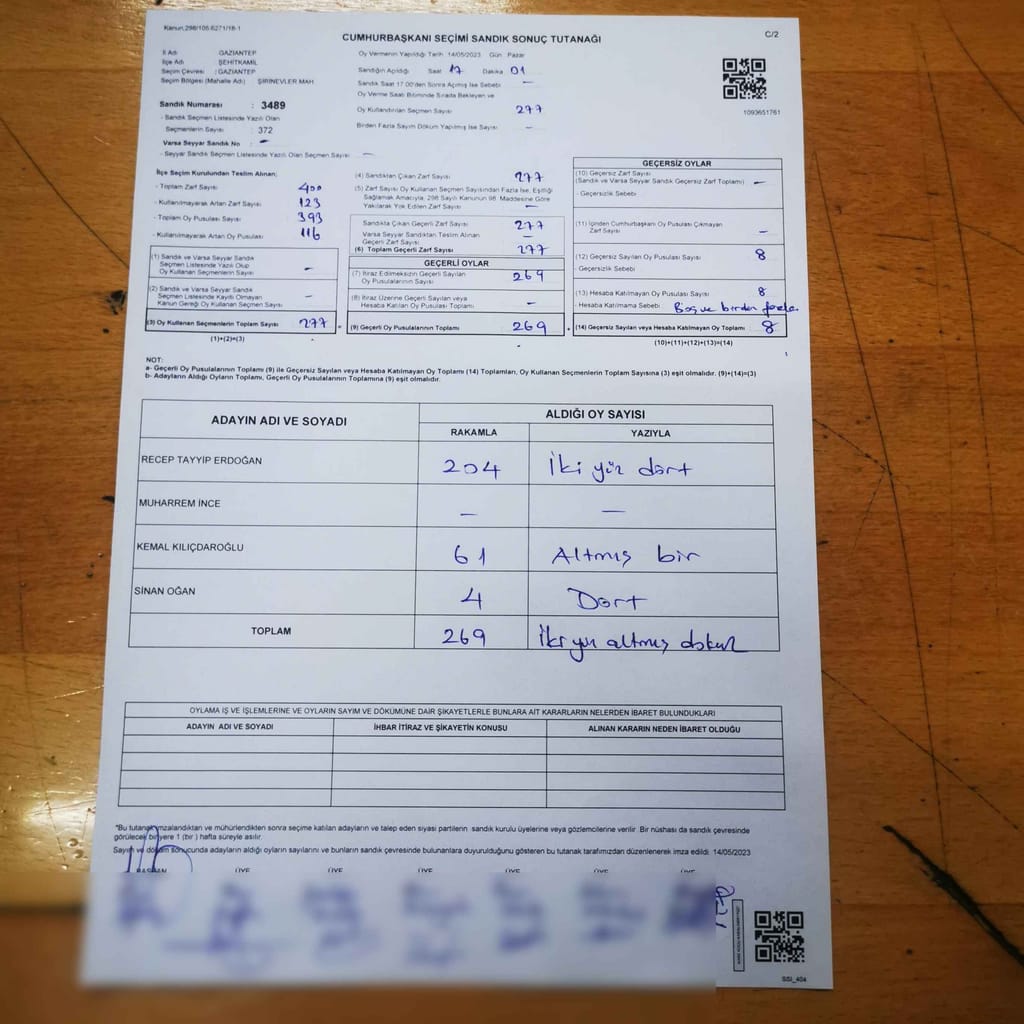 Kanun,298/105.6271/16-1
C/2
CUMHURBAŞKANI SEÇİMİ SANDIK SONUÇ TUTANAĞI
İl Adı GAZİANTEP
İlçe Adı ŞEHİTKAMİL
Seçim Çevresi : GAZİANTEP
Seçim Bölgesi (Mahalle Adı) ŞİRİNEVLER MAH
Sandık Numarası : 3489
- Sandık Seçmen Listesinde Yazılı Olan
Seçmenlerin Sayısı : 372
Varsa Seyyar Sandık No : -
- Seyyar Sandık Seçmen Listesinde Yazılı Olan Seçmen Sayısı : -
Oy Vermenin Yapıldığı Tarih 14/05/2023 Gün : Pazar
Sandığın Açıldığı Saat 17 Dakika 01
Sandık Saat 17.00'den Sonra Açılmış İse Sebebi -
Oy Verme Saati Bitiminde Sırada Bekleyen ve
Oy Kullandırılan Seçmen Sayısı 277
Birden Fazla Sayım Döküm Yapılmış İse Sayısı -
1093651761
İlçe Seçim Kurulundan Teslim Alınan;
- Toplam Zarf Sayısı 400
- Kullanılmayarak Artan Zarf Sayısı 123
- Toplam Oy Pusulası Sayısı 393
- Kullanılmayarak Artan Oy Pusulası 116
(1) Sandık ve Varsa Seyyar Sandık
Seçmen Listesinde Yazılı Olup
Oy Kullanan Seçmenlerin Sayısı -
(2) Sandık ve Varsa Seyyar Sandık
Seçmen Listesinde Kayıtlı Olmayan
Kanun Gereği Oy Kullanan Seçmen Sayısı -
(3) Oy Kullanan Seçmenlerin Toplam Sayısı 277 =
(1)+(2)=(3)
(4) Sandıktan Çıkan Zarf Sayısı 277
(5) Zarf Sayısı Oy Kullanan Seçmen Sayısından Fazla İse, Eşitliği
Sağlamak Amacıyla, 298 Sayılı Kanunun 98. Maddesine Göre
Yakılarak Yok Edilen Zarf Sayısı -
Sandıkta Çıkan Geçerli Zarf Sayısı 277
Varsa Seyyar Sandıktan Teslim Alınan
Geçerli Zarf Sayısı -
(6) Toplam Geçerli Zarf Sayısı 277
GEÇERLİ OYLAR
(7) İtiraz Edilmeksizin Geçerli Sayılan
Oy Pusulasının Sayısı 269
(8) İtiraz Üzerine Geçerli Sayılan veya
Hesaba Katılan Oy Pusulası Toplamı -
(9) Geçerli Oy Pusulalarının Toplamı 269 +
GEÇERSİZ OYLAR
(10) Geçersiz Zarf Sayısı
(Sandık ve Varsa Seyyar Sandık Geçersiz Zarf Toplamı) -
- Geçersizlik Sebebi
(11) İçinden Cumhurbaşkanı Oy Pusulası Çıkmayan
Zarf Sayısı -
(12) Geçersiz Sayılan Oy Pusulası Sayısı 8
- Geçersizlik Sebebi
(13) Hesaba Katılmayan Oy Pusulası Sayısı 8
- Hesaba Katılmama Sebebi Boş ve birden fazla
(14) Geçersiz Sayılan veya Hesaba Katılmayan Oy Toplamı 8
(10)+(11)+(12)+(13)=(14)
NOT:
a- Geçerli Oy Pusulalarının Toplamı (9) ile Geçersiz Sayılan veya Hesaba Katılmayan Oy Toplamı (14) Toplamları, Oy Kullanan Seçmenlerin Toplam Sayısına (3) eşit olmalıdır. (9)+(14)=(3)
b- Adayların Aldığı Oyların Toplamı, Geçerli Oy Pusulalarının Toplamına (9) eşit olmalıdır.
ADAYIN ADI VE SOYADI
ALDIĞI OY SAYISI
RAKAMLA YAZIYLA
RECEP TAYYİP ERDOĞAN 204 İki yüz dört
MUHARREM İNCE - -
KEMAL KILIÇDAROĞLU 61 Altmış bir
SİNAN OĞAN 4 Dört
TOPLAM 269 İki yüz altmış dokuz
OYLAMA İŞ VE İŞLEMLERİNE VE OYLARIN SAYIM VE DÖKÜMÜNE DAİR ŞİKAYETLERLE BUNLARA AİT KARARLARIN NELERDEN İBARET BULUNDUKLARI
ADAYIN ADI VE SOYADI İHBAR İTİRAZ VE ŞİKAYETİN KONUSU ALINAN KARARIN NEDEN İBARET OLDUĞU
*Bu tutanak imzalandıktan ve mühürlendikten sonra seçime katılan adayların ve talep eden siyasi partilerin sandık kurulu üyelerine veya gözlemcilerine verilir. Bir nüshası da sandık çevresinde
görülecek bir yere 1 (bir) hafta süreyle asılır.
Sayım ve döküm sonucunda adayların aldığı oyların sayılarını ve bunların sandık çevresinde bulunanlara duyurulduğunu gösteren bu tutanak tarafımızdan düzenlenerek imza edildi. 14/05/2023
BAŞKAN ÜYE ÜYE ÜYE ÜYE ÜYE ÜYE
SSI_404